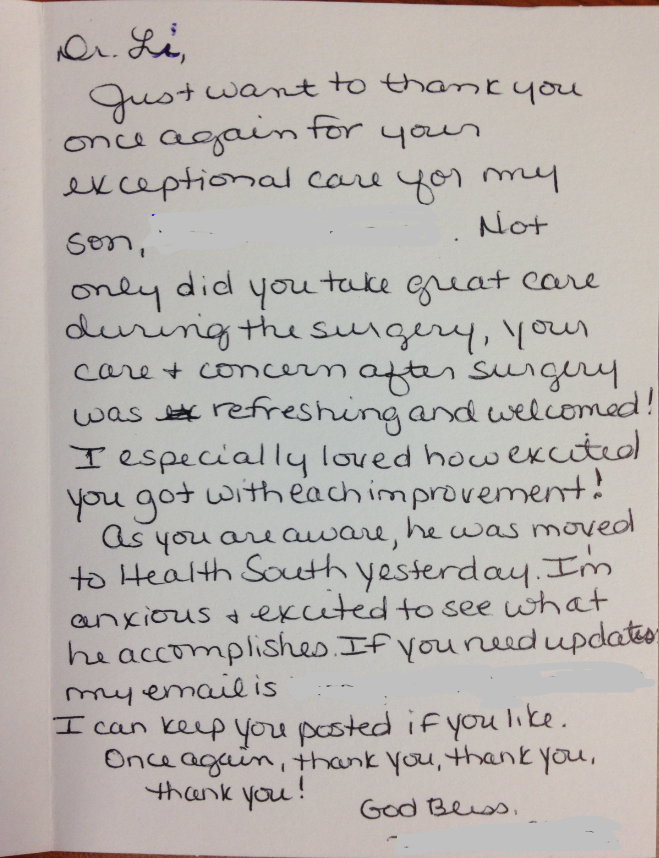 Dr. Li,
Just want to thank you
once again for your
exceptional care for my
son, . Not
only did you take great care
during the surgery, your
care + concern after surgery
was refreshing and welcomed!
I especially loved how excited
you got with each improvement!
As you are aware, he was moved
to Health South yesterday. I'm
anxious + excited to see what
he accomplishes. If you need updates
my email is
I can keep you posted if you like.
Once again, thank you, thank you,
thank you!
God Bless.